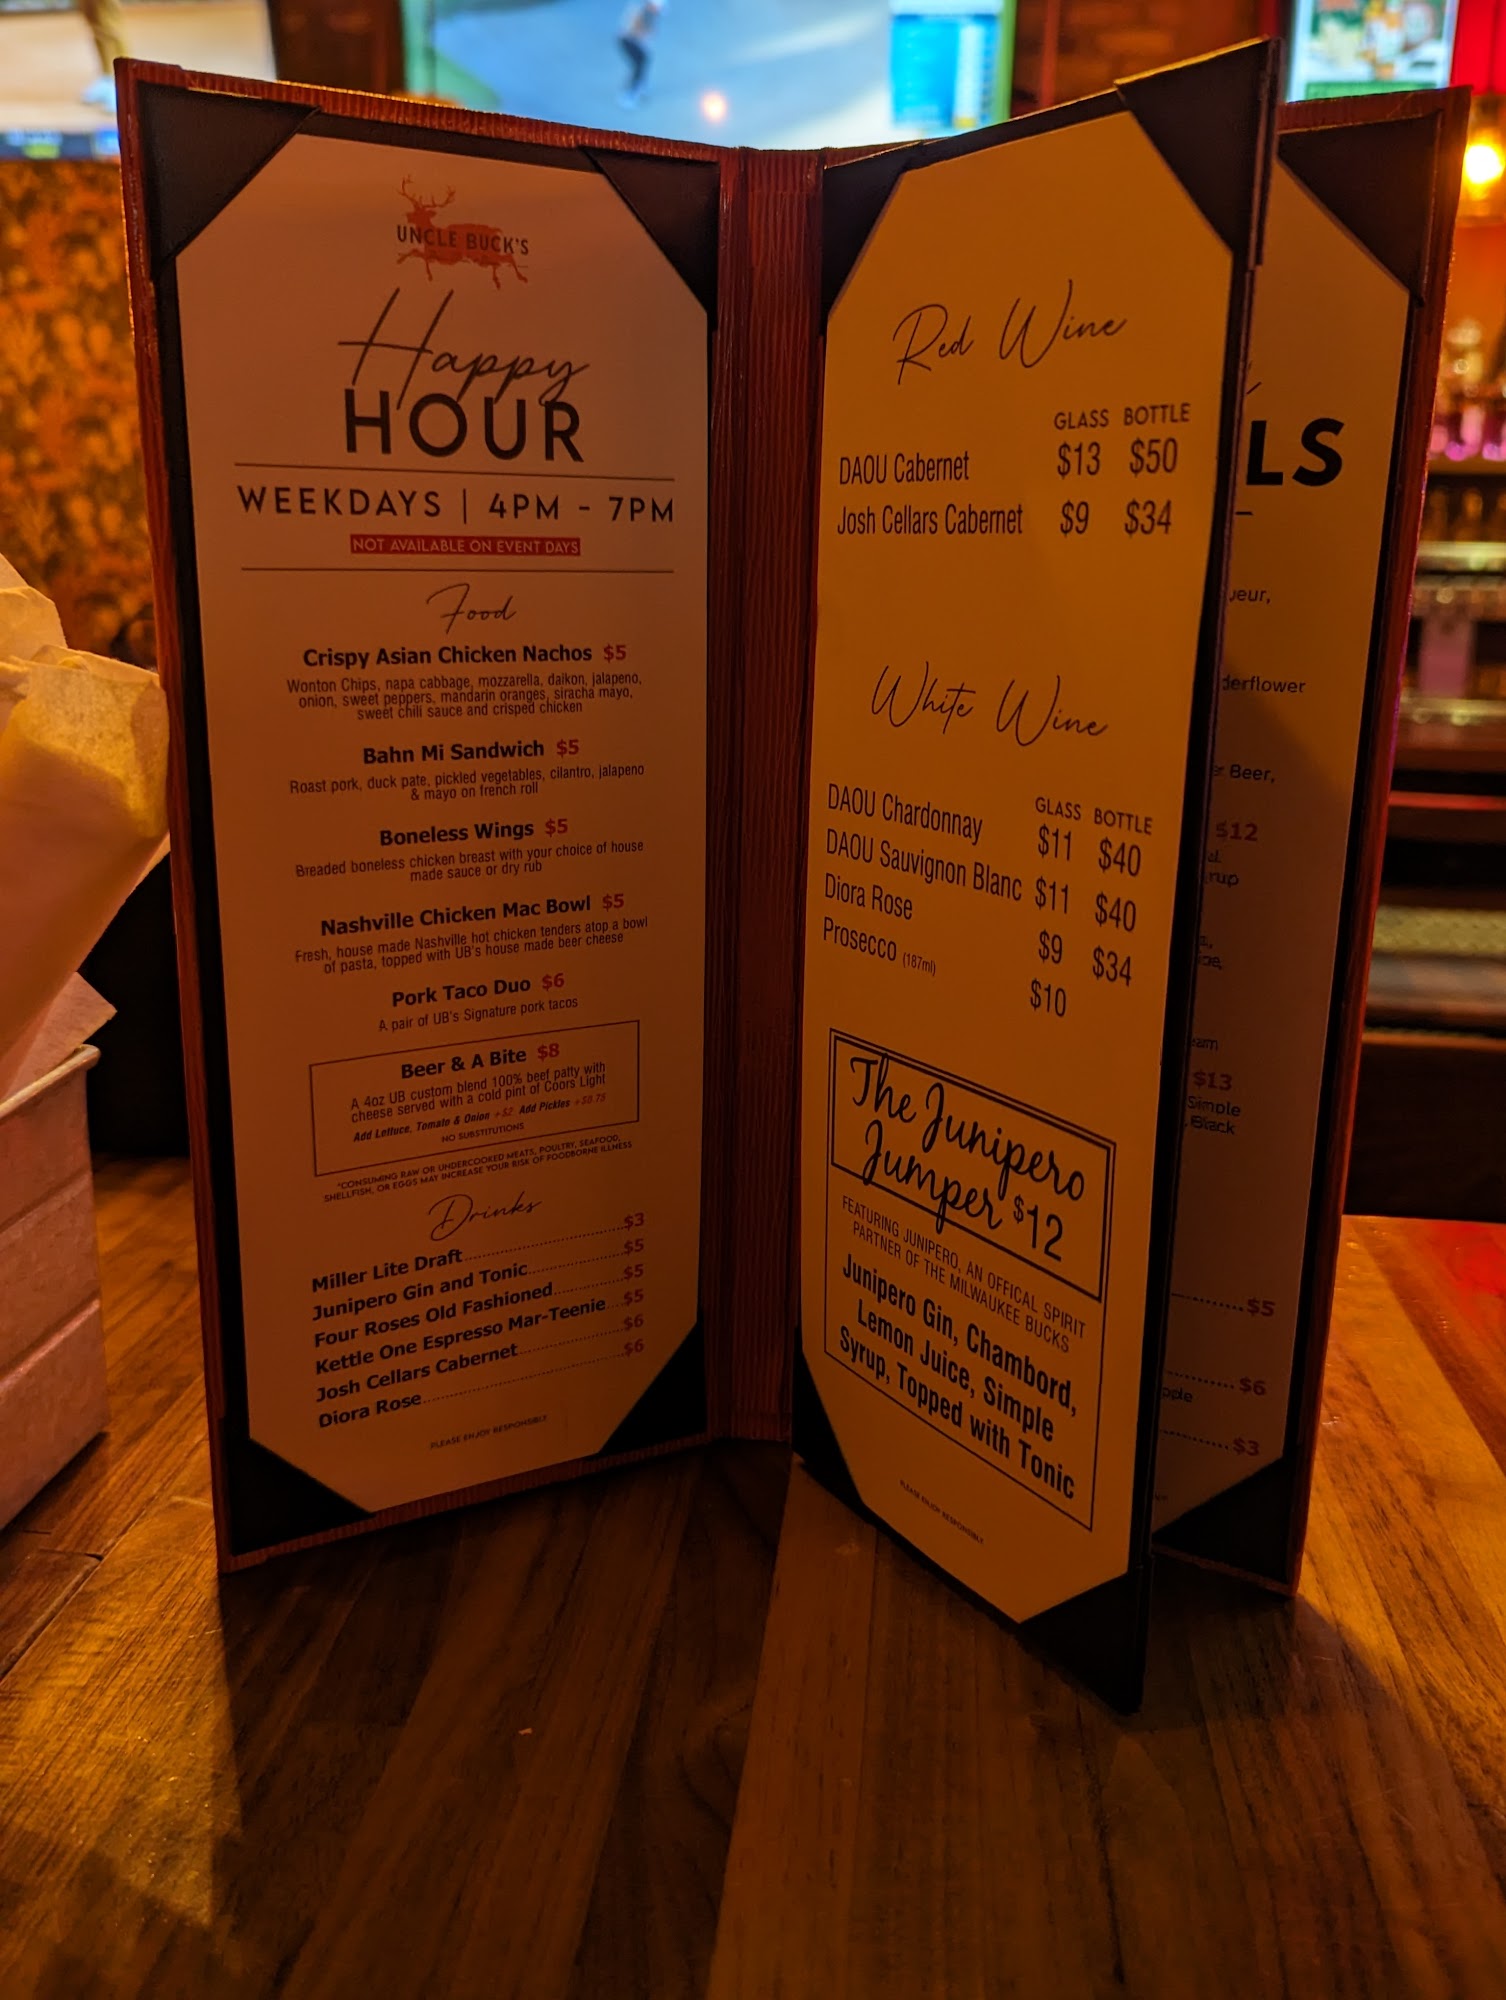 UNCLE BUCK'S
Happy
HOUR
WEEKDAYS | 4PM - 7PM
NOT AVAILABLE ON EVENT DAYS
Food
Crispy Asian Chicken Nachos $5
Wonton Chips, napa cabbage, mozzarella, daikon, jalapeno,
onion, sweet peppers, mandarin oranges, siracha mayo,
sweet chili sauce and crisped chicken
Bahn Mi Sandwich $5
Roast pork, duck pate, pickled vegetables, cilantro, jalapeno
& mayo on french roll
Boneless Wings $5
Breaded boneless chicken breast with your choice of house
made sauce or dry rub
Nashville Chicken Mac Bowl $5
Fresh, house made Nashville hot chicken tenders atop a bowl
of pasta, topped with UB's house made beer cheese
Pork Taco Duo $6
A pair of UB's Signature pork tacos
Beer & A Bite $8
A 4oz UB custom blend 100% beef patty with
cheese served with a cold pint of Coors Light
Add Lettuce, Tomato & Onion +$2 Add Pickles +$0.75
NO SUBSTITUTIONS
*CONSUMING RAW OR UNDERCOOKED MEATS, POULTRY, SEAFOOD,
SHELLFISH, OR EGGS MAY INCREASE YOUR RISK OF FOODBORNE ILLNESS
Drinks
Miller Lite Draft $3
Junipero Gin and Tonic $5
Four Roses Old Fashioned $5
Kettle One Espresso Mar-Teenie $5
Josh Cellars Cabernet $6
Diora Rose $6
PLEASE ENJOY RESPONSIBLY
Red Wine
GLASS BOTTLE
DAOU Cabernet $13 $50
Josh Cellars Cabernet $9 $34
White Wine
GLASS BOTTLE
DAOU Chardonnay $11 $40
DAOU Sauvignon Blanc $11 $40
Diora Rose $9 $34
Prosecco (187ml) $10
The Junipero
Jumper $12
FEATURING JUNIPERO, AN OFFICAL SPIRIT
PARTNER OF THE MILWAUKEE BUCKS
Junipero Gin, Chambord,
Lemon Juice, Simple
Syrup, Topped with Tonic
PLEASE ENJOY RESPONSIBLY
LS
eur,
derflower
Beer,
$12
rup
$13
Simple
Black
$5
$6
$3